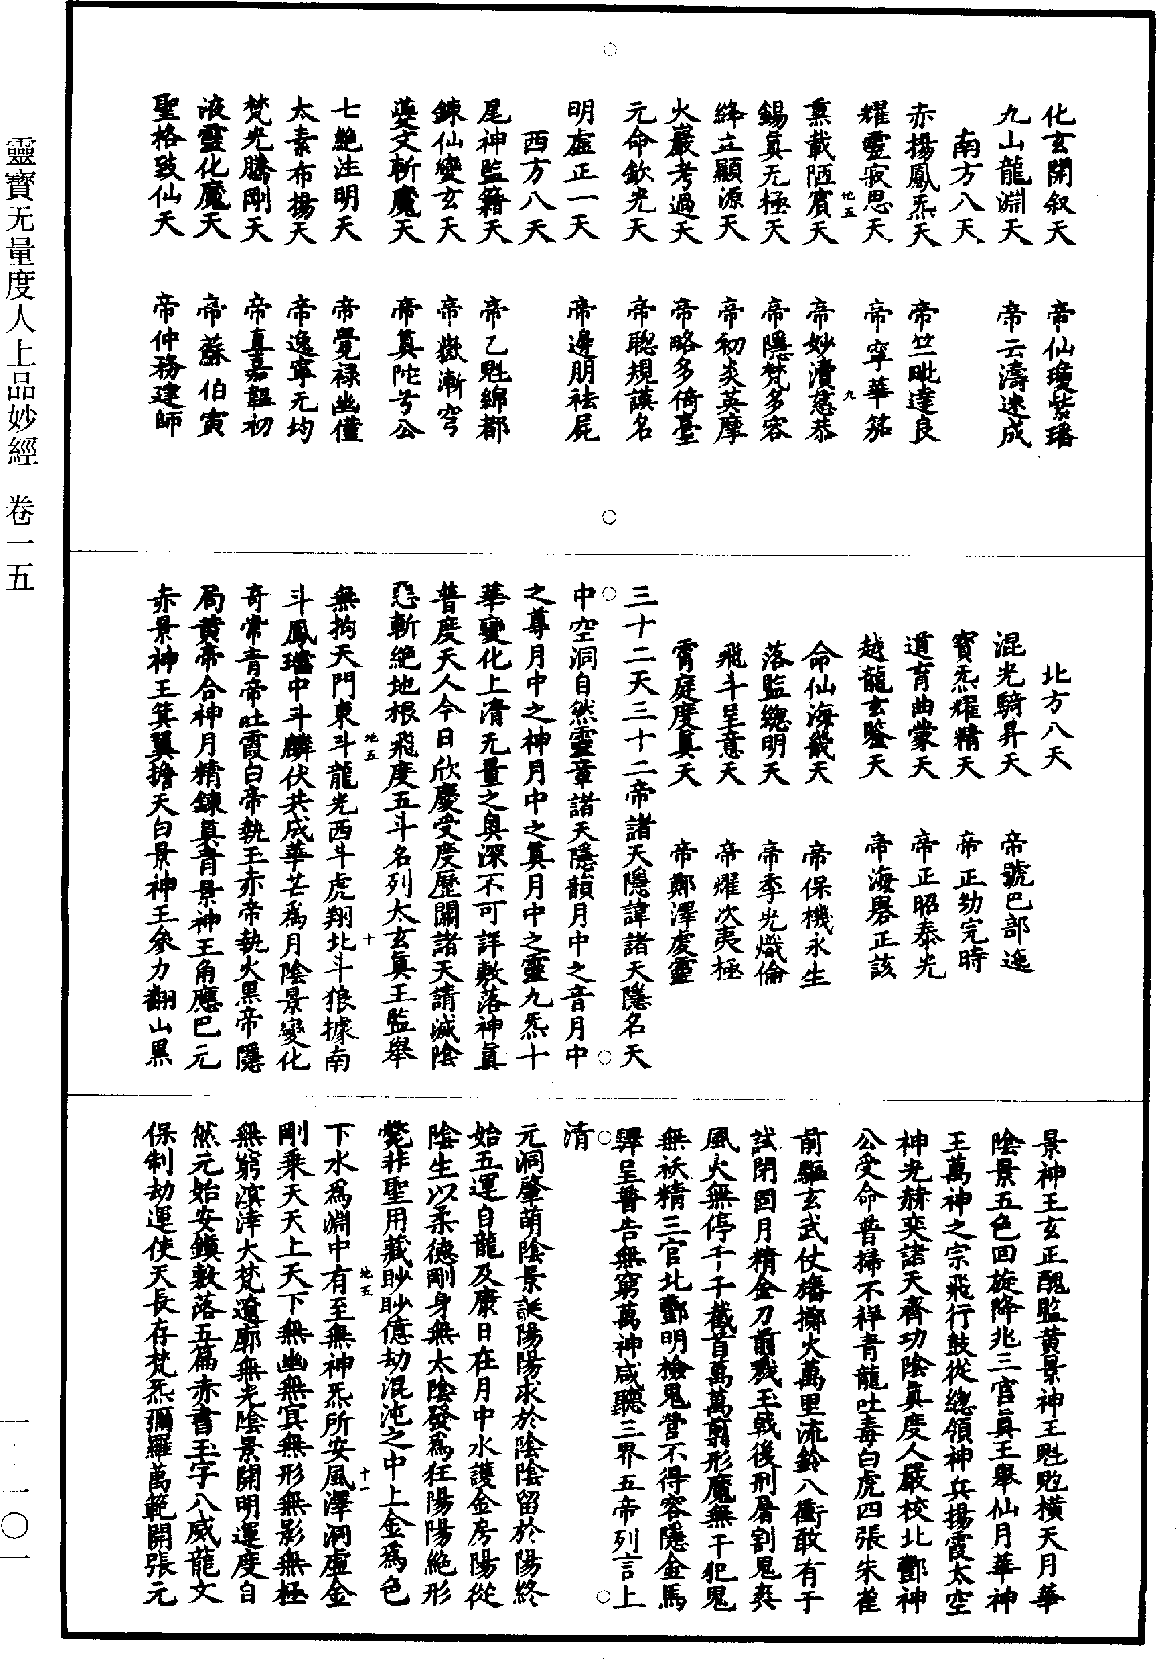 化玄開叙天　帝仙瓊紫璠
九山龍淵天　帝云濤逑成
南方八天
赤揚鳳炁天　帝竺毗達良
耀靈寂思天　帝寜華茄
地五　九
熏載陋賔天　帝妙瀆慈恭
錫真无極天　帝隱梵多容
絳立顯源天　帝初炎英摩
火巖考過天　帝略多倚臺
元命欽光天　帝聰規謨名
明虛正一天　帝邊朋袪屍
西方八天
尾神監籍天　帝乙魁綿都
錬仙變玄天　帝嶽漸穹
變文斬魔天　帝箕陀兮公
七絶注明天　帝覺禄幽僮
太素布揚天　帝逸寧无均
梵光騰剛天　帝真嘉韞初
液靈化魔天　帝蘇伯寅
聖格致仙天　帝仲務建師
北方八天
混光騎昇天　帝號巴部逸
寳炁耀精天　帝正劫完時
道育曲蒙天　帝正昭泰光
越龍玄鑒天　帝海晷正該
命仙海餕天　帝保機永生
落監總明天　帝季光熾倫
飛斗呈意天　帝耀次夷極
霄庭度真天　帝鄭澤處靈
三十二天三十二帝諸天隱諱諸天隱名天
中空洞自然靈章諸天隱韻月中之音月中
之尊月中之神月中之真月中之靈九炁十
華變化上清无量之奥深不可詳敷落神真
普度天人今日欣慶受度歷關諸天請滅陰
惡斬絶地根飛度五斗名列太玄真王監舉
地五　十
無拘天門東斗龍光西斗虎翔北斗狼據南
斗鳳璫中斗麟伏共成華芒爲月陰景變化
奇常青帝吐霞白帝執玉赤帝執火黒帝隱
局黄帝合神月精錬真青景神王角應巴元
赤景神王箕翼擔天白景神王參力翻山黒
景神王玄正醜監黄景神王魁魒横天月華
陰景五色回旋降兆三官真王舉仙月華神
王萬神之宗飛行鼓從總領神兵揚霞太空
神光赫奕諸天齊功陰真度人嚴校北酆神
公受命普掃不祥青龍吐毒白虎四張朱雀
前驅玄武仗旛擲火萬里流鈴八衝敢有干
試閉固月精金刀前戮玉戟後刑屠割鬼爽
風火無停千千截首萬萬剪形魔無干犯鬼
無袄精三官北酆明檢鬼營不得容隱金馬
驛呈普告無窮萬神咸聽三界五帝列言上
清
元洞肇萌陰景誕陽陽求於陰陰留於陽終
始五運自龍及康日在月中水護金房陽從
陰生以柔德剛身無太陰發爲狂陽陽絶形
斃非聖用藏眇眇億劫混沌之中上金爲色
地五　十一
下水爲淵中有至無神炁所安風澤洞虛金
剛乘天天上天下無幽無冥無形無影無極
無窮溟涬大梵遼廓無光陰景開明運度自
然元始安鎮敷落五篇赤書玉字八威龍文
保制劫運使天長存梵炁彌羅萬範開張元
靈寶无量度人上品妙經　卷一五
一一一〇一